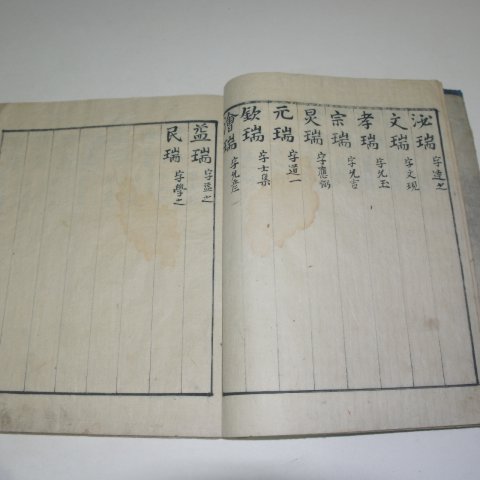 泌瑞 字達之
文瑞 字文現
孝瑞 字允玉
宗瑞 字允吉
炅瑞 字應弼
元瑞 字道一
欽瑞 字士集
會瑞 字允
益瑞 字益之
民瑞 字學之